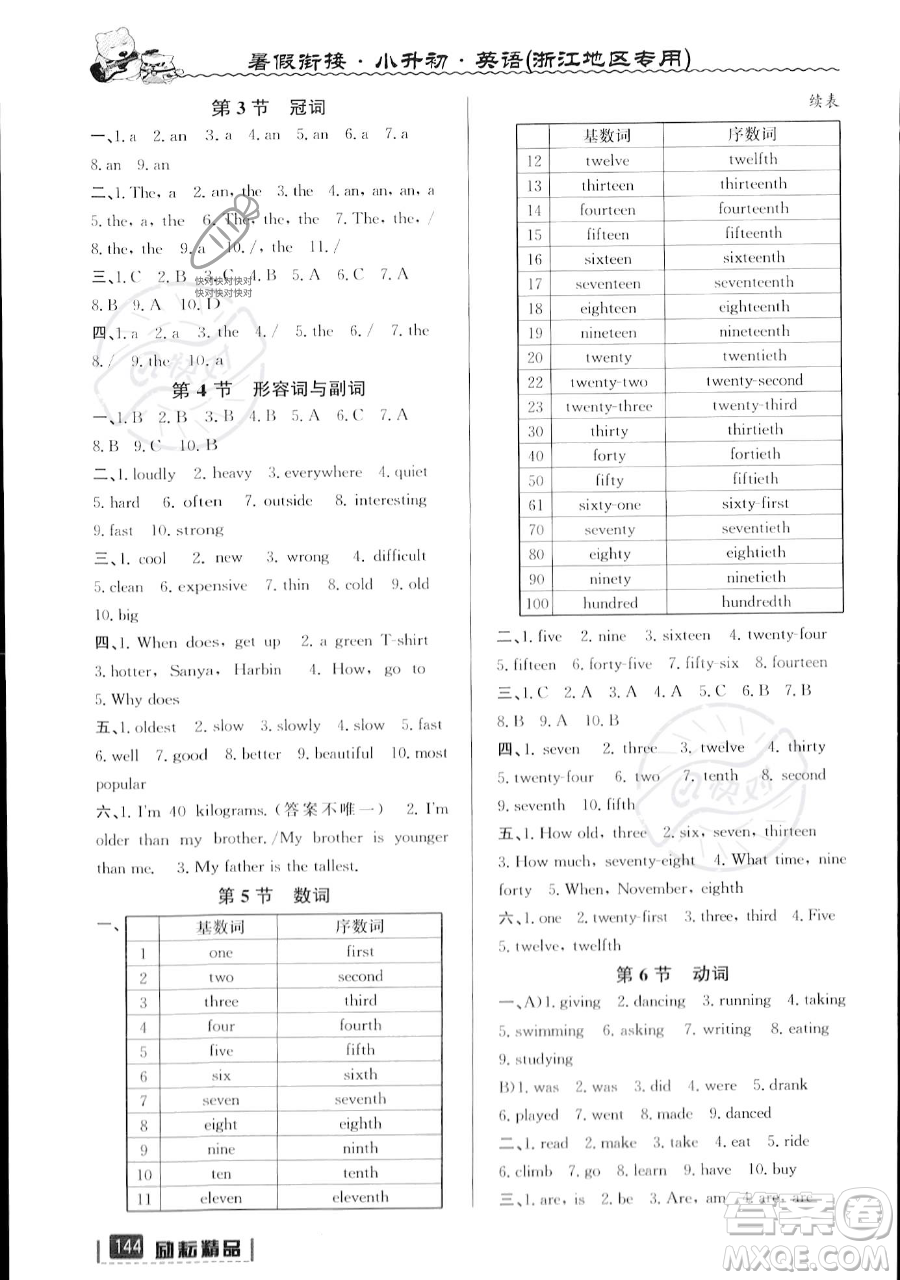 暑假衔接·小升初·英语(浙江地区专用)
第3节 冠词
一、1. a 2. an 3. a 4. an 5. an 6. a 7. a
8. an 9. an
二、1. The, a 2. an, the 3. the 4. an, an, a
5. the, a, the 6. The, the 7. The, the, /
8. the, the 9. a 10. /, the 11. /
三、1. C 2. B 3. C 4. B 5. A 6. A 7. A
8. B 9. A 10. D
四、1. a 2. a 3. the 4. / 5. / 6. / 7. the
8. / 9. the 10. a
第4节 形容词与副词
一、1. B 2. B 3. B 4. B 5. A 6. A 7. A
8. B 9. C 10. B
二、1. loudly 2. heavy 3. everywhere 4. quiet
5. hard 6. often 7. outside 8. interesting
9. fast 10. strong
三、1. cool 2. new 3. wrong 4. difficult
5. clean 6. expensive 7. thin 8. cold 9. old
10. big
四、1. When does, get up 2. a green T-shirt
3. hotter, Sanya, Harbin 4. How, go to
5. Why does
五、1. oldest 2. slow 3. slowly 4. slow 5. fast
6. well 7. good 8. better 9. beautiful 10. most
popular
六、1. I'm 40 kilograms.(答案不唯一) 2. I'm
older than my brother./My brother is younger
than me. 3. My father is the tallest.
第5节 数词
一、
基数词 序数词
1 one first
2 two second
3 three third
4 four fourth
5 five fifth
6 six sixth
7 seven seventh
8 eight eighth
9 nine ninth
10 ten tenth
11 eleven eleventh
续表
基数词 序数词
12 twelve twelfth
13 thirteen thirteenth
14 fourteen fourteenth
15 fifteen fifteenth
16 sixteen sixteenth
17 seventeen seventeenth
18 eighteen eighteenth
19 nineteen nineteenth
20 twenty twentieth
22 twenty-two twenty-second
23 twenty-three twenty-third
30 thirty thirtieth
40 forty fortieth
50 fifty fiftieth
61 sixty-one sixty-first
70 seventy seventieth
80 eighty eightieth
90 ninety ninetieth
100 hundred hundredth
二、1. five 2. nine 3. sixteen 4. twenty-four
5. fifteen 6. forty-five 7. fifty-six 8. fourteen
三、1. C 2. A 3. B 4. C 5. A 6. B 7. B
8. B 9. A 10. B
四、1. seven 2. three 3. twelve 4. thirty
5. twenty-four 6. two 7. tenth 8. second
9. seventh 10. fifth
五、1. How old, three 2. six, seven, thirteen
3. How much, seventy-eight 4. What time, nine
forty 5. When, November, eighth
六、1. one 2. twenty-first 3. three, third 4. Five
5. twelve, twelfth
第6节 动词
一、A) 1. giving 2. dancing 3. running 4. taking
5. swimming 6. asking 7. buying 8. eating
9. studying
B) 1. was 2. was 3. did 4. were 5. drank
6. played 7. went 8. made 9. danced
二、1. read 2. make 3. take 4. eat 5. ride
6. climb 7. go 8. learn 9. have 10. buy
三、1. are, is 2. be 3. Are, am 4. are, are
144 励耘精品
快对快对快对
快对快对快对
快对
答案圈
MXQE.COM